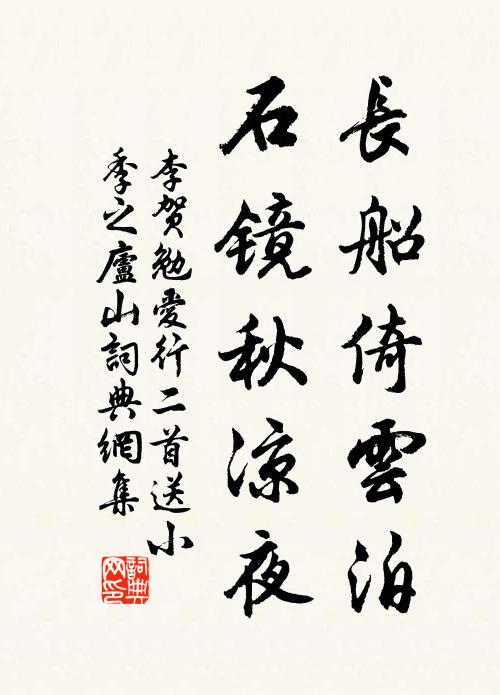 長船倚雲泊
石镜秋涼夜
李贺勉愛行二首送小
季之廬山詞典網集
詞典
网印